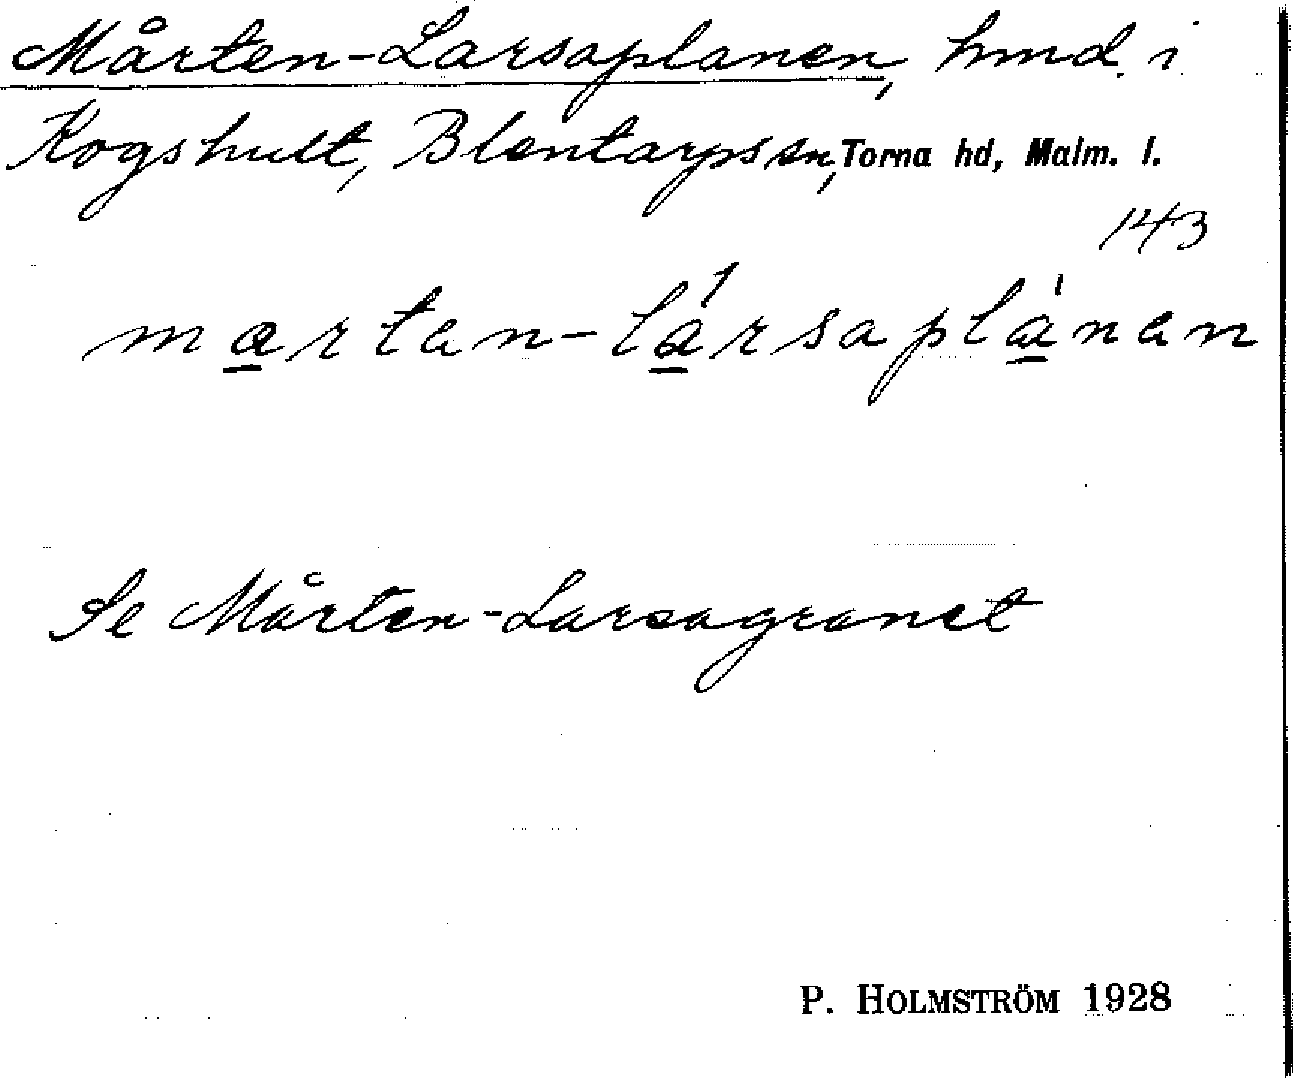 Mårten-Larsaplanen, hmd. i
Kogshult, Blentarps sn, Torna hd, Malm. l.
143
marten-lársaplánen
Se Mårten-Larsagranet
P. HOLMSTRÖM 1928